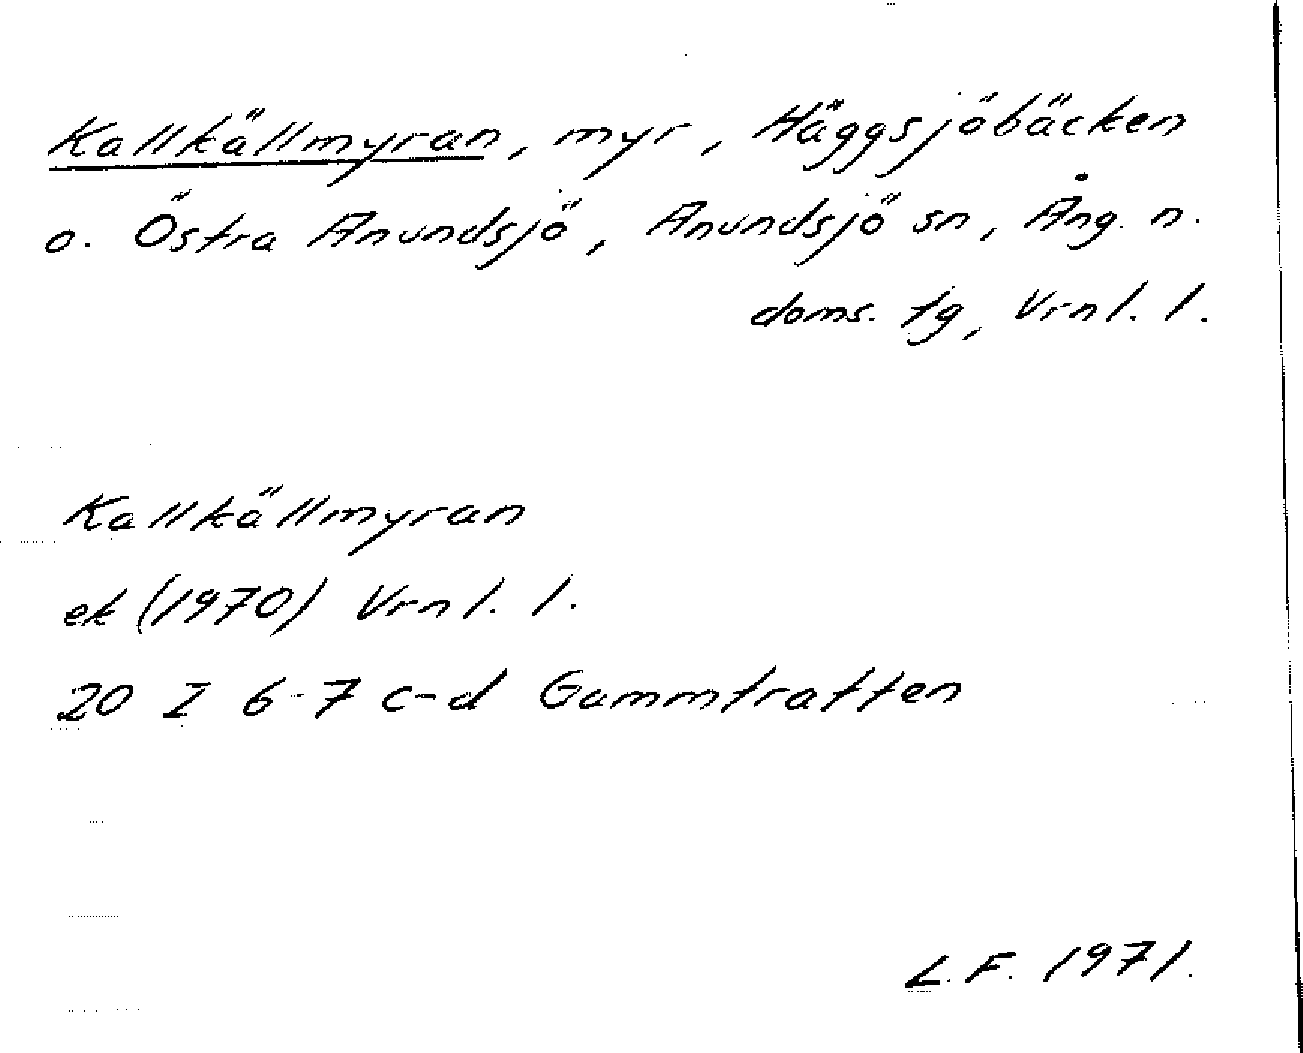 Kallkällmyran, myr, Häggsjöbäcken
o. Östra Anundsjö, Anundsjö sn, Ång. n.
doms. tg, Vrnl. l.
Kallkällmyran
ek (1970) Vrnl. l.
20 I 6-7 c-d Gammtratten
L.F. 1971.